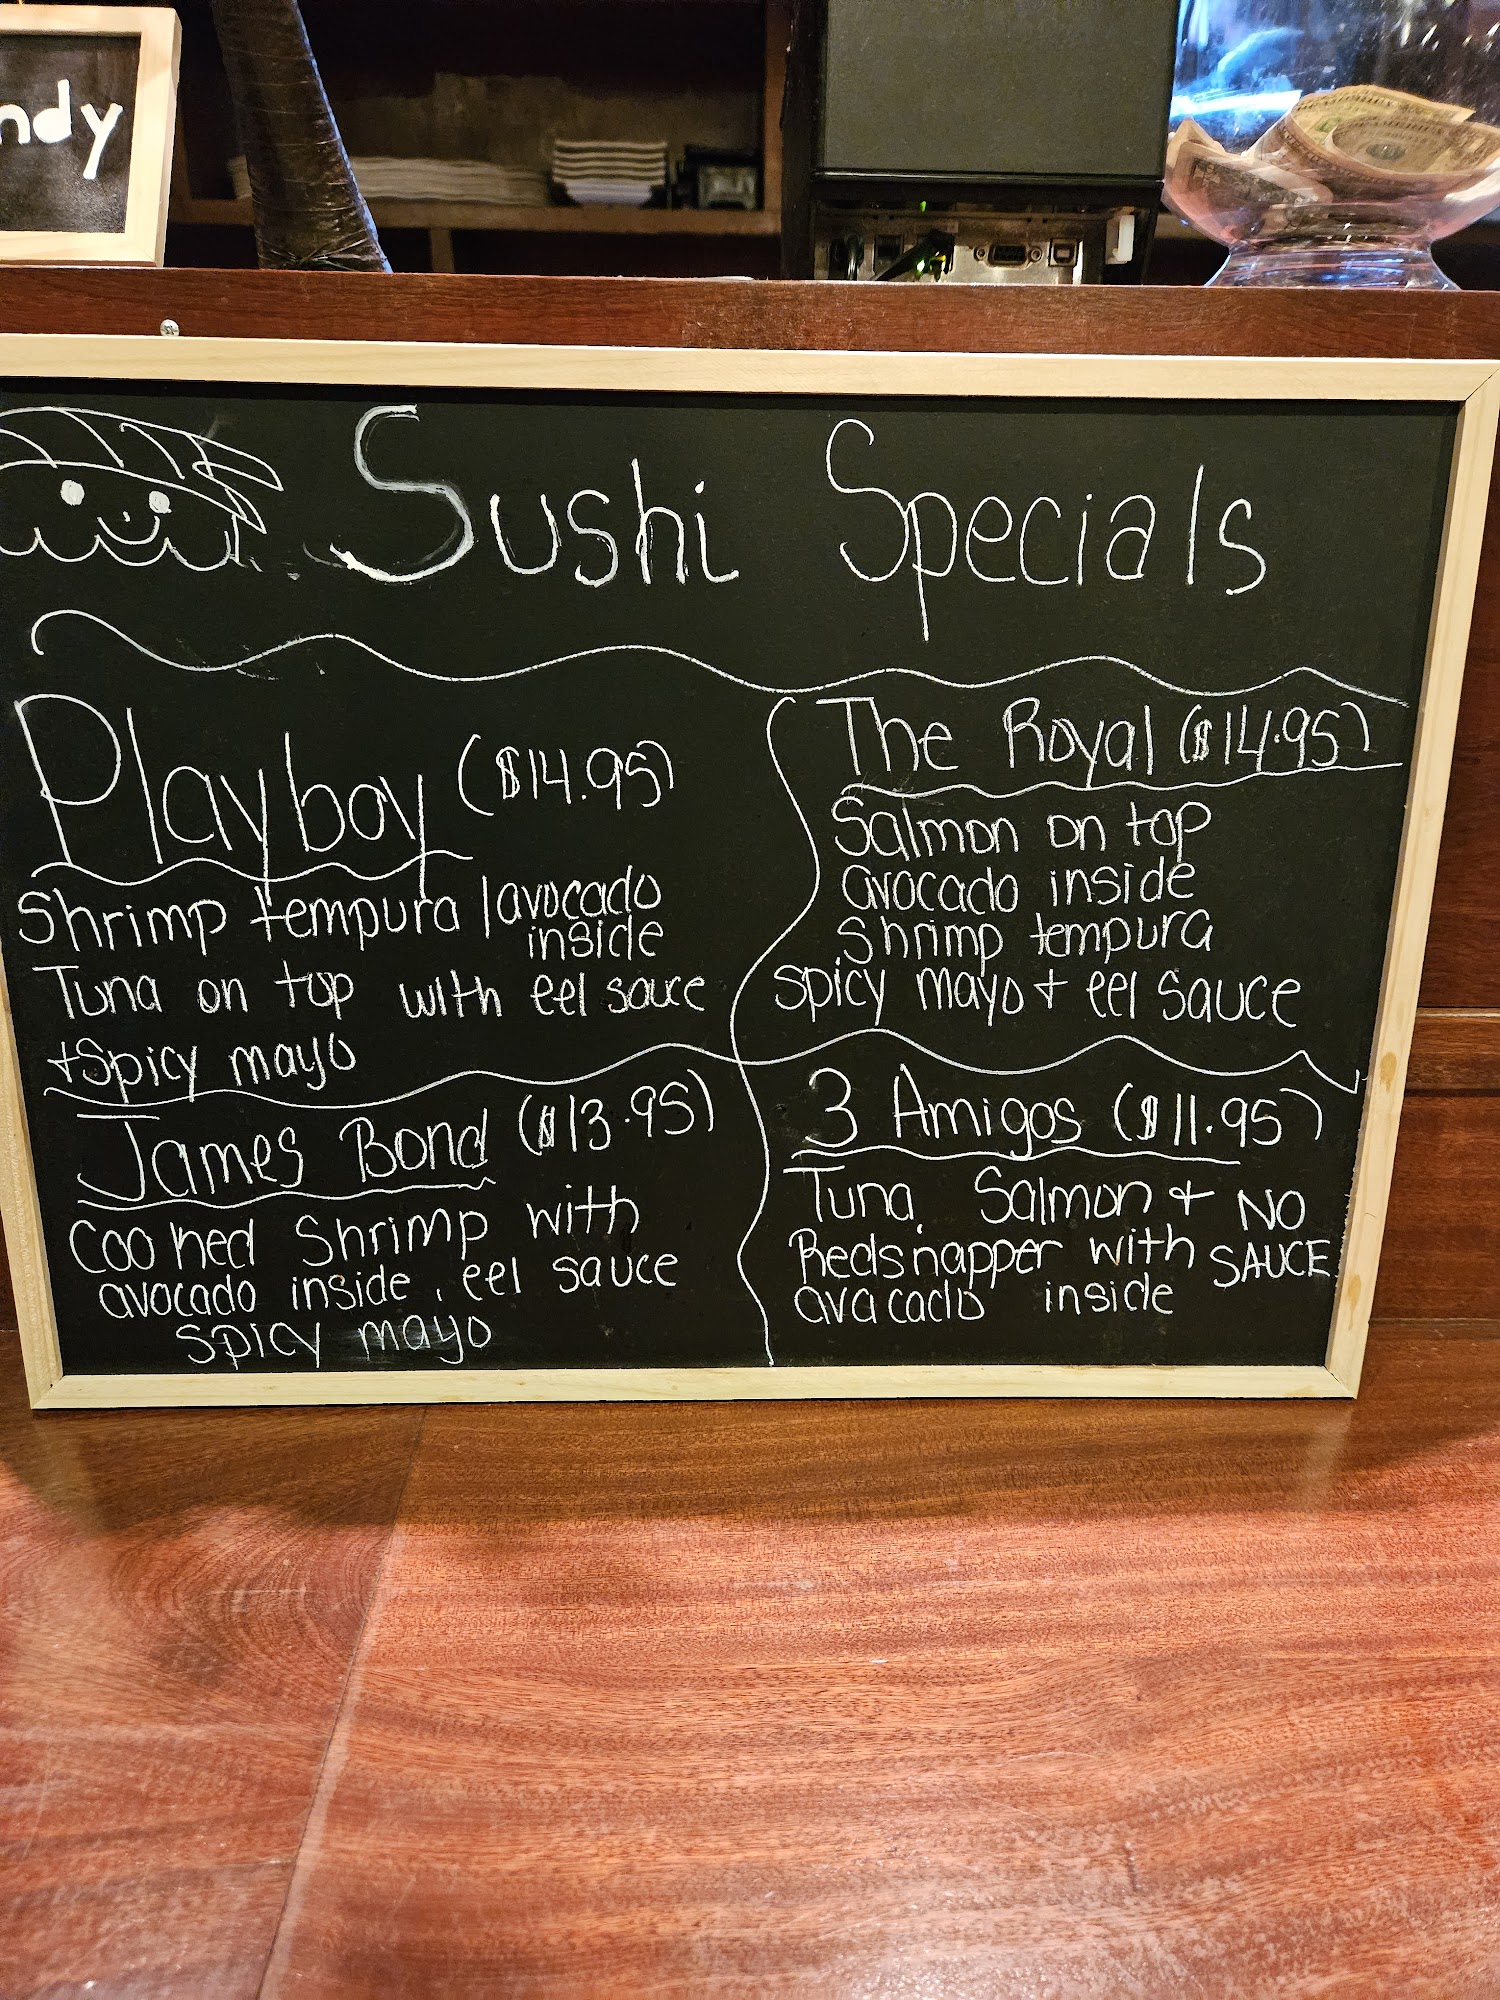 ndy
Sushi Specials
Playboy ($14.95)
Shrimp tempura / avocado
inside
Tuna on top with eel sauce
+ Spicy mayo
The Royal ($14.95)
Salmon on top
avocado inside
Shrimp tempura
spicy mayo + eel sauce
James Bond ($13.95)
Cooked Shrimp with
avocado inside, eel sauce
spicy mayo
3 Amigos ($11.95)
Tuna, Salmon +
Redsnapper with
avacado inside
NO
SAUCE